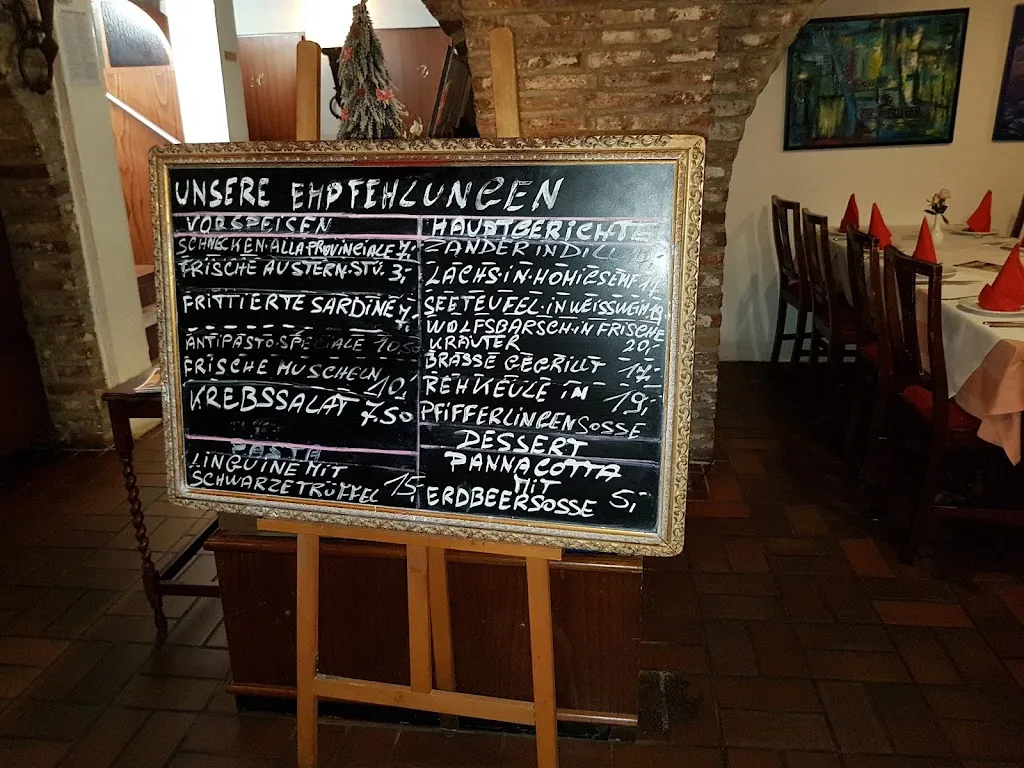 UNSERE EMPFEHLUNGEN
VORSPEISEN
SCHNECKEN·ALLA PROVINCIALE 7,-
FRISCHE AUSTERN·STÜ. 3,-
FRITTIERTE SARDINE 7,-
ANTIPASTO·SPECIALE 10,50
FRISCHE MUSCHELN 10,-
KREBSSALAT 7.50
PASTA
LINGUINE MIT
SCHWARZETRÜFFEL 15,-
HAUPTGERICHTE
ZANDER IN DILL
LACHS·IN·HONIGSENF
SEETEUFEL·IN WEISSWEIN 19,-
WOLFSBARSCH·IN FRISCHE
KRÄUTER 20,-
BRASSE GEGRILLT 17,-
REHKEULE IN 19,-
PFIFFERLINGENSOSSE
DESSERT
PANNACOTTA
MIT
ERDBEERSOSSE 5,-